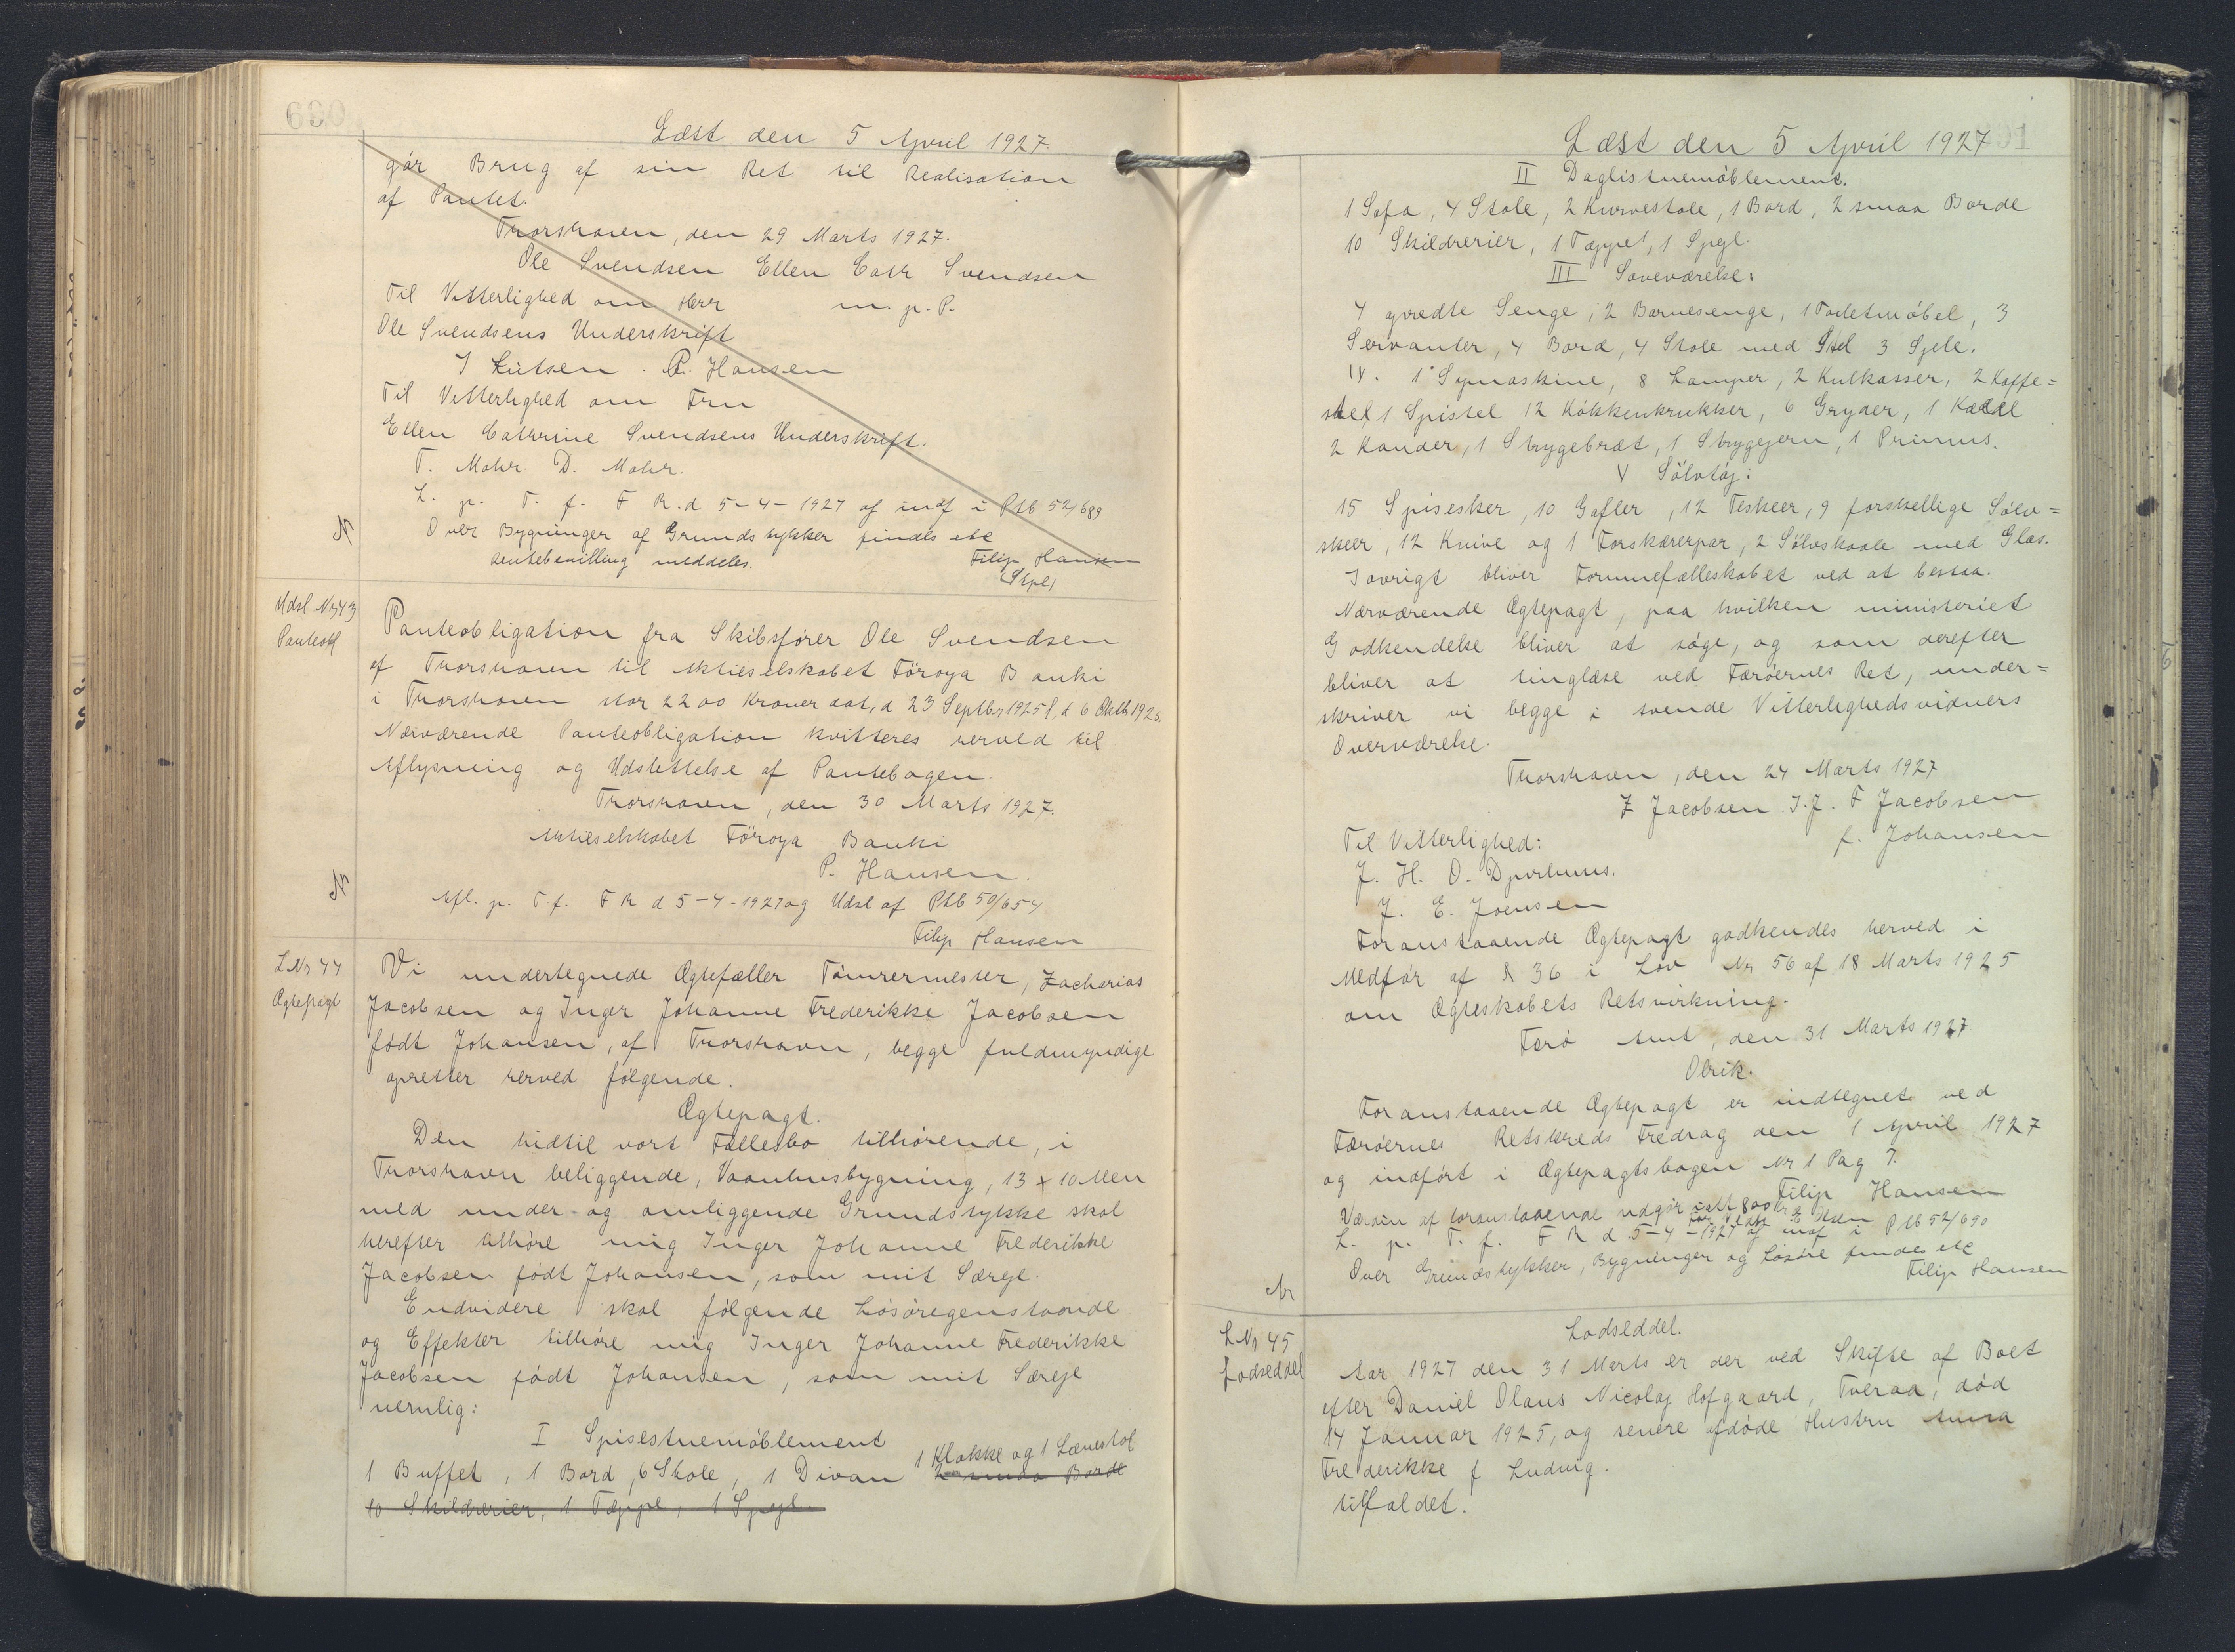 690
Læst den 5 April 1927
gør Brug af sin Ret til Realisation
af Pantet.
Thorshavn, den 29 Marts 1927.
Ole Svendsen Ellen Cath Svendsen
Til Vitterlighed om Herr m. p. P.
Ole Svendsens Underskrift
J Lützen. P. Hansen
Til Vitterlighed om Fru
Ellen Cathrine Svendsens Underskrift.
T. Mohr. D. Mohr.
L. p. T. f. F R. d 5-4-1927 og indf i Ptb 52/689
Over Bygninger og Grundstykker findes etc
Filip Hansen
Udsl Nr 43
Panteobl
Panteobligation fra Skibsfører Ole Svendsen
af Thorshavn til Aktieselskabet Föroya Banki
i Thorshavn stor 2200 Kroner dat, d 23 Septbr 1925 l, d 6 Oktb 1925.
Nærværende Panteobligation kvitteres herved til
Aflysning og Udslettelse af Pantebogen.
Thorshavn, den 30 Marts 1927.
Aktieselskabet Föroya Banki
P. Hansen.
Afl. p. T. f. F R d 5-4-1927 og Udsl af Ptb 50/654
Filip Hansen
L Nr 44
Ægtepagt
Vi undertegnede Ægtefæller Tömrermester, Zacharias
Jacobsen og Inger Johanne Frederikke Jacobsen
født Johansen, af Thorshavn, begge fuldmyndige
opretter herved følgende.
Ægtepagt.
Den hidtil vort Fællesbo tilhørende, i
Thorshavn beliggende, Vaanhusbygning, 13 x 10 Alen
med under og omliggende Grundstykke skal
herefter tilhøre mig Inger Johanne Frederikke
Jacobsen født Johansen, som mit Særeje.
Endvidere skal følgende Løsøregenstande
og Effekter tilhøre mig Inger Johanne Frederikke
Jacobsen født Johansen, som mit Særeje
nemlig:
I Spisestuemöblement
1 Buffet, 1 Bord, 6 Stole, 1 Divan 1 Klokke og 1 Lænestol
2 smaa Borde
10 Skilderier, 1 Tæppe, 1 Spejl
Læst den 5 April 1927
II Dagligstuemöblement.
1 Sofa, 4 Stole, 2 Kurvestole, 1 Bord, 2 smaa Borde
10 Skildrerier, 1 Tæppe, 1 Spejl.
III Soveværelse:
4 opredte Senge, 2 Barnesenge, 1 Toiletmøbel, 3
Servanter, 4 Bord, 4 Stole med Stel 3 Spejle.
IV. 1 Symaskine, 8 Lamper, 2 Kulkasser, 2 Kaffe=
stel 1 Spistel 12 Køkkenkrukker, 6 Gryder, 1 Kedel
2 Kander, 1 Strygebræt, 1 Strygejern, 1 Primus.
V Sölvtöj:
15 Spisesker, 10 Gafler, 12 Teskeer, 9 forskellige Sölv=
skeer, 12 Knive og 1 Forskærerpar, 2 Sölvskaale med Glas.
Iøvrigt bliver Formuefælleskabet ved at bestaa.
Nærværende Ægtepagt, paa hvilken ministeriet
Godkendelse bliver at søge, og som derefter
bliver at tinglæse ved Færöernes Ret, under=
skriver vi begge i tvende Vitterlighedsvidners
Overværelse.
Thorshavn, den 24 Marts 1927
Z Jacobsen I. J. F Jacobsen
f. Johansen
Til Vitterlighed:
J. H. O. Djurhuus.
J. E. Joensen
Foranstaaende Ægtepagt godkendes herved i
Medfør af § 36 i Lov Nr 56 af 18 Marts 1925
om Ægteskabets Retsvirkning.
Færø Amt, den 31 Marts 1927
Olrik.
Foranstaaende Ægtepagt er indtegnet ved
Færöernes Retskreds Fredag den 1 April 1927
og indført i Ægtepagtsbogen Nr 1 Pag 7.
Filip Hansen
Værdien af foranstaaende udgør ialt 800 Kr
L. p. T. f. F R d 5-4-1927 og indf i Ptb 52/690
Over Grundstykker, Bygninger og Løsøre findes etc
Filip Hansen
L Nr 45
Lodseddel
Lodseddel.
Aar 1927 den 31 Marts er der ved Skifte af Boet
efter Daniel Olaus Nicolaj Hofgaard, Tveraa, død
14 Januar 1925, og senere afdøde Hustru Anna
Frederikke f Ludvig.
tilfaldet.